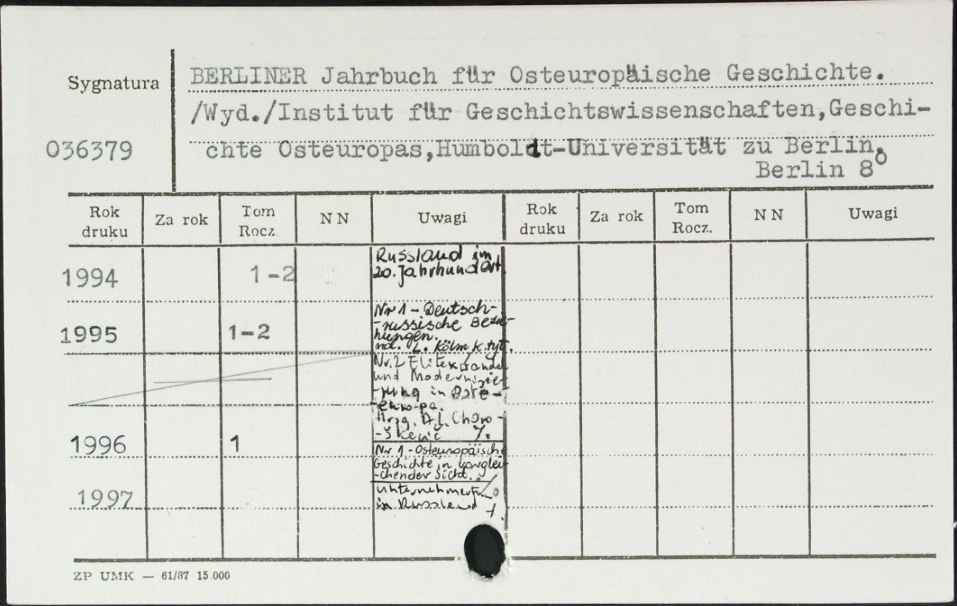 Sygnatura
BERLINER Jahrbuch für Osteuropäische Geschichte.
/Wyd./Institut für Geschichtswissenschaften,Geschi-
036379
chte Osteuropas,Humboldt-Universität zu Berlin.
Berlin 8°
Rok druku Za rok Tom Rocz. NN Uwagi Rok druku Za rok Tom Rocz. NN Uwagi
1994 1-2 Russland im
20. Jahrhundert
1995 1-2 Nr 1 - Deutsch-
-russische Bezie-
hungen.
Nr. 2 Elitenwandel
und Modernisie-
-rung in Oste-
-europa.
Hrsg.
1996 1 Nr 1 - Osteuropäische
Geschichte in verglei-
-chender Sicht.
1997 Unternehmert
in Russland +
ZP UMK — 61/87 15.000